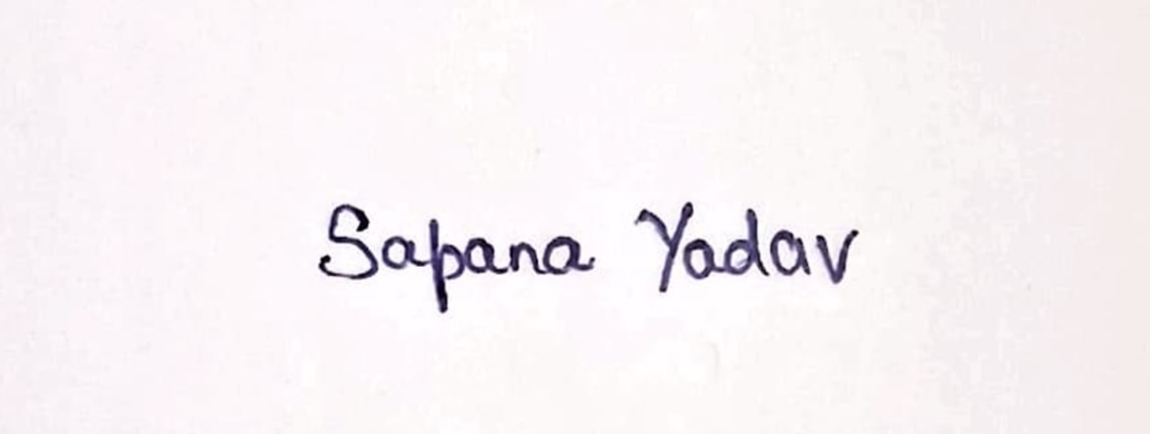 Sapana Yadav